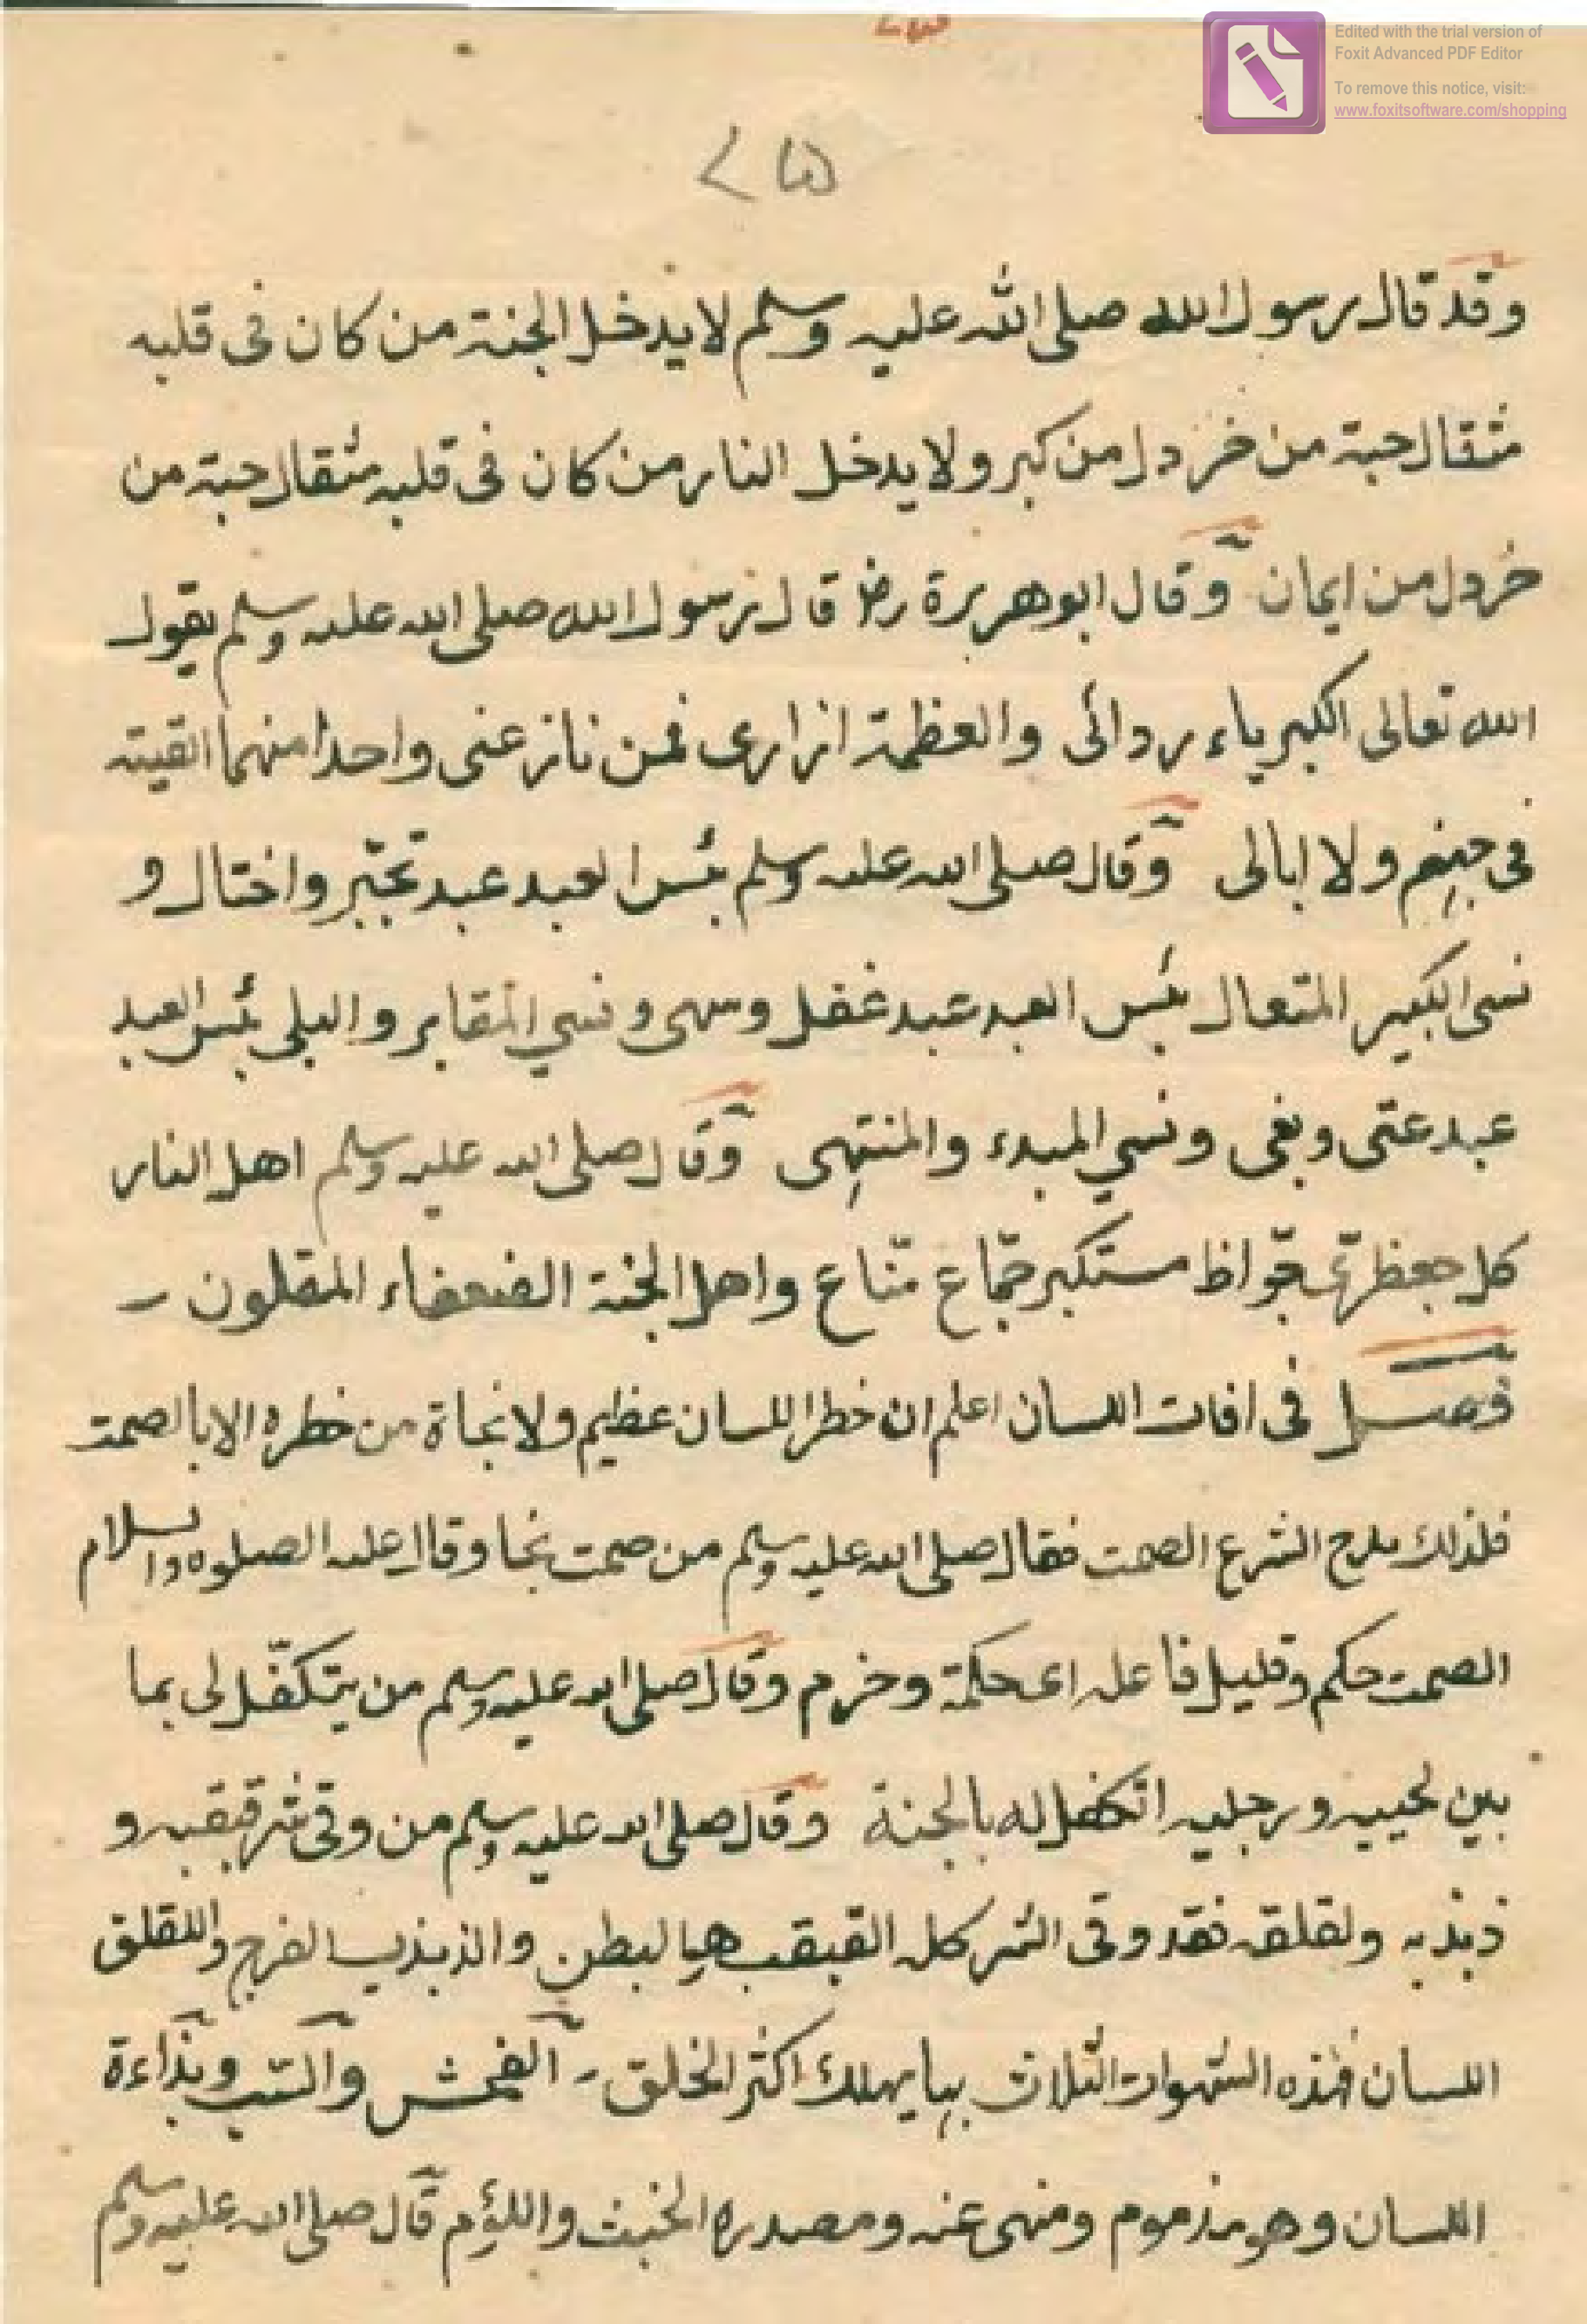 Edited with the trial version of
Foxit Advanced PDF Editor
To remove this notice, visit:
www.foxitsoftware.com/shopping
وقد قال رسول الله صلى الله عليه وسلم لا يدخل الجنة من كان فى قلبه
مثقال حبة من خردل من كبر ولا يدخل النار من كان فى قلبه مثقال حبة من
خردل من ايمان وقال ابوهريرة رض قال رسول الله صلى الله عليه وسلم يقول
الله تعالى الكبرياء ردائى والعظمة ازارى فمن نازعنى واحدا منهما القيته
فى جهنم ولا ابالى وقال صلى الله عليه وسلم بئس العبد عبد تجبّر واختال و
نسى الكبير المتعال بئس العبد عبد غفل وسهى ونسي المقابر والبلى بئس العبد
عبد عتى وبغى ونسي المبدء والمنتهى وقال صلى الله عليه وسلم اهل النار
كل جعظرىّ جوّاظ مستكبر جمّاع منّاع واهل الجنة الضعفاء المقلون -
فصل فى افات اللسان اعلم ان خطر اللسان عظيم ولا نجاة من خطره الا بالصمت
فلذلك مدح الشرع الصمت فقال صلى الله عليه وسلم من صمت نجا وقال عليه الصلوه والسلام
الصمت حكم وقليل فاعله اى حكمة وحزم وقال صلى الله عليه وسلم من يتكفّل لى بما
بين لحييه ورجليه اتكفل له بالجنة وقال صلى الله عليه وسلم من وقى شر قبقبه و
ذبذبه ولقلقه فقد وقى الشر كله القبقب هو البطن والذبذب الفرج واللقلق
اللسان فهذه الشهوات الثلاث بها يهلك اكثر الخلق - الفحش والسّب وبذاءة
اللسان وهو مذموم ومنهى عنه ومصدره الخبث واللؤم قال صلى الله عليه وسلم